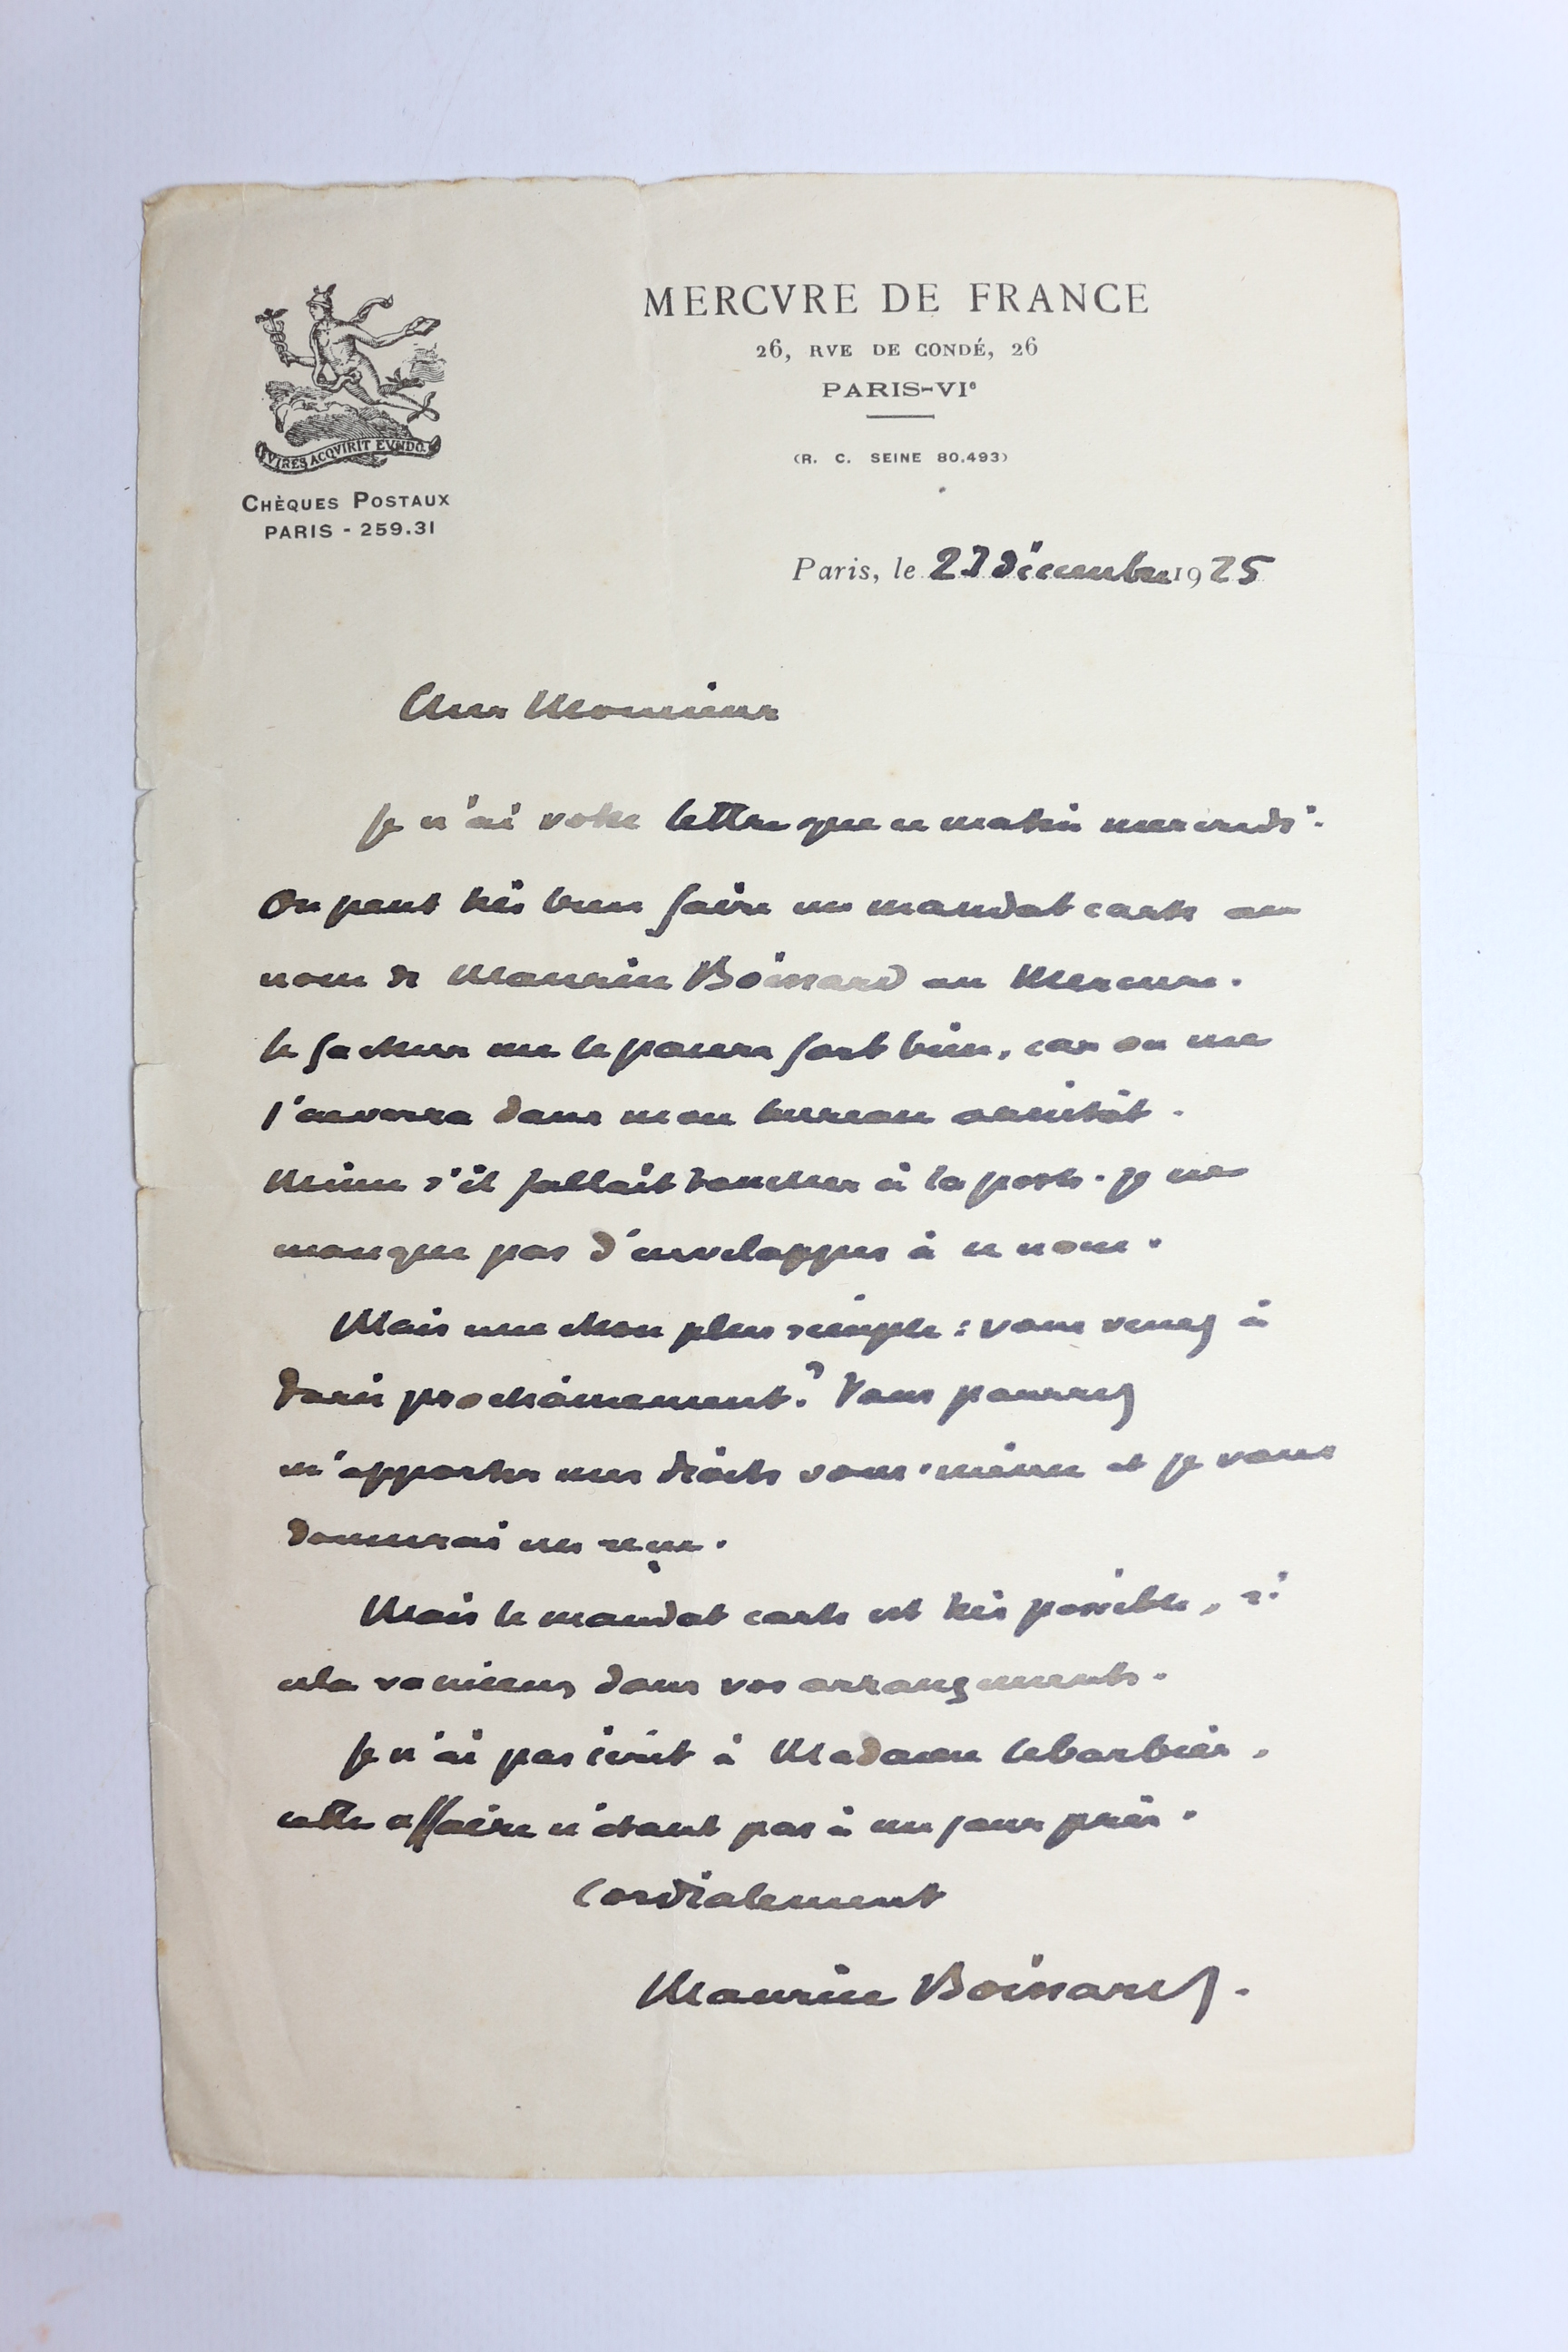 MERCVRE DE FRANCE
26, RVE DE CONDÉ, 26
PARIS-VIe
(R. C. SEINE 80.493)
VIRES ACQVIRIT EVNDO
CHÈQUES POSTAUX
PARIS - 259.31
Paris, le 23 Décembre 1925
Cher Monsieur
Je n'ai votre lettre que ce matin mercredi.
On peut très bien faire un mandat carte au
nom de Maurice Boissard au Mercure.
Le facteur me le paiera fort bien, car on me
l'enverra dans mon bureau aussitôt.
Même s'il fallait toucher à la poste. Je ne
manque pas d'enveloppes à ce nom.
Mais une chose plus simple : vous venez à
Paris prochainement ? Vous pourrez
m'apporter mes droits vous-même et je vous
donnerai un reçu.
Mais le mandat carte est très possible, si
cela va mieux dans vos arrangements.
Je n'ai pas écrit à Madame Lebarbier,
cette affaire n'étant pas à un jour près.
Cordialement
Maurice Boissard.